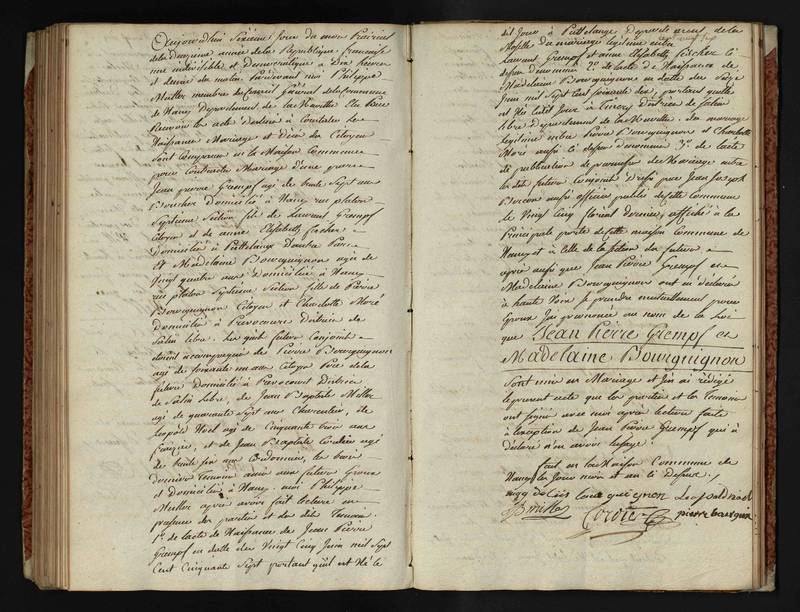 Aujourd'hui Seizieme jour du mois Prairial
de la Deuxieme année de la Republique francaise
une indivisible et Democratique à Dix heures
et demie du matin Pardevant moi Philippe
Muller membre du Conseil Général de la Commune
de Nancy Departement de la Meurthe Elu pour
Recevoir les actes Destinés à Constater les
Naissances Mariages et Décès des Citoyens
Sont Comparus en la Maison Commune
pour Contracter Mariage d'une part
Jean pierre Grempf agé de trente Sept ans
Boucher Domicilié à Nancy rue platon
Septieme Section fils de Laurent Grempf
Citoyen et de anne Elisabeth fischer
Domiciliés à Puttelange D'autre Part
Et Madelaine Bourguignon agée de
Vingt quatre ans Domiciliée à Nancy
rue platon Septieme Section fille de Pierre
Bourguignon Citoyen et Charlotte Moré
Domiciliés à District de
Salin libre. Les quels futurs Conjoints
étoient accompagnés de Pierre Bourguignon
agé de Soixante ans Citoyen Pere de la
future Domicilié à District
de Salin libre, de Jean Baptiste Miller
agé de quarante Sept ans Charcutier, de
Léopold Noël agé de Cinquante trois ans
et de Jean Baptiste agé
de trente Six ans Cordonnier, les trois
derniers temoins amis aux futurs Epoux
et Domiciliés à Nancy. moi Philippe
Muller après avoir fait lecture en
presence des parties et des dits temoins
1°. de l'acte de Naissance de Jean Pierre
Grempf en datte du Vingt Cinq Juin mil Sept
Cent Cinquante Sept portant qu'il est Né le
dit Jour à Puttelange Departement de la
Moselle du mariage legitime entre
Laurent Grempf et anne Elisabeth fischer Ci
dessus Denommés 2°. de l'acte de Naissance de
Madelaine Bourguignon en datte du
Juin mil Sept Cent Soixante dix, portant qu'elle
est Née ledit Jour à District de Salin
libre Departement de la Meurthe. du mariage
legitime entre Pierre Bourguignon et Charlotte
Moré aussi Ci dessus denommés 3°. de l'acte
de publication de promesses de Mariage entre
les dits futurs Conjoints Dressé par Jean Joseph
aussi officier public de cette Commune
le Vingt Cinq floréal dernier, affiché à la
Principale porte de cette maison Commune de
Nancy et à Celle de la Section des futurs
après aussi que Jean Pierre Grempf et
Madelaine Bourguignon ont eu déclaré
à haute Voix Se prendre mutuellement pour
Epoux J'ai prononcé au nom de la Loi
que Jean Pierre Grempf et
Madelaine Bourguignon
Sont unis en Mariage et J'en ai rédigé
le present acte que les parties et les temoins
ont Signé avec moi après lecture faite
à l'exception de Jean Pierre Grempf qui à
déclaré n'en avoir l'usage.
fait en la Maison Commune de
Nancy les Jour mois et an Ci Dessus.
Leopold noel